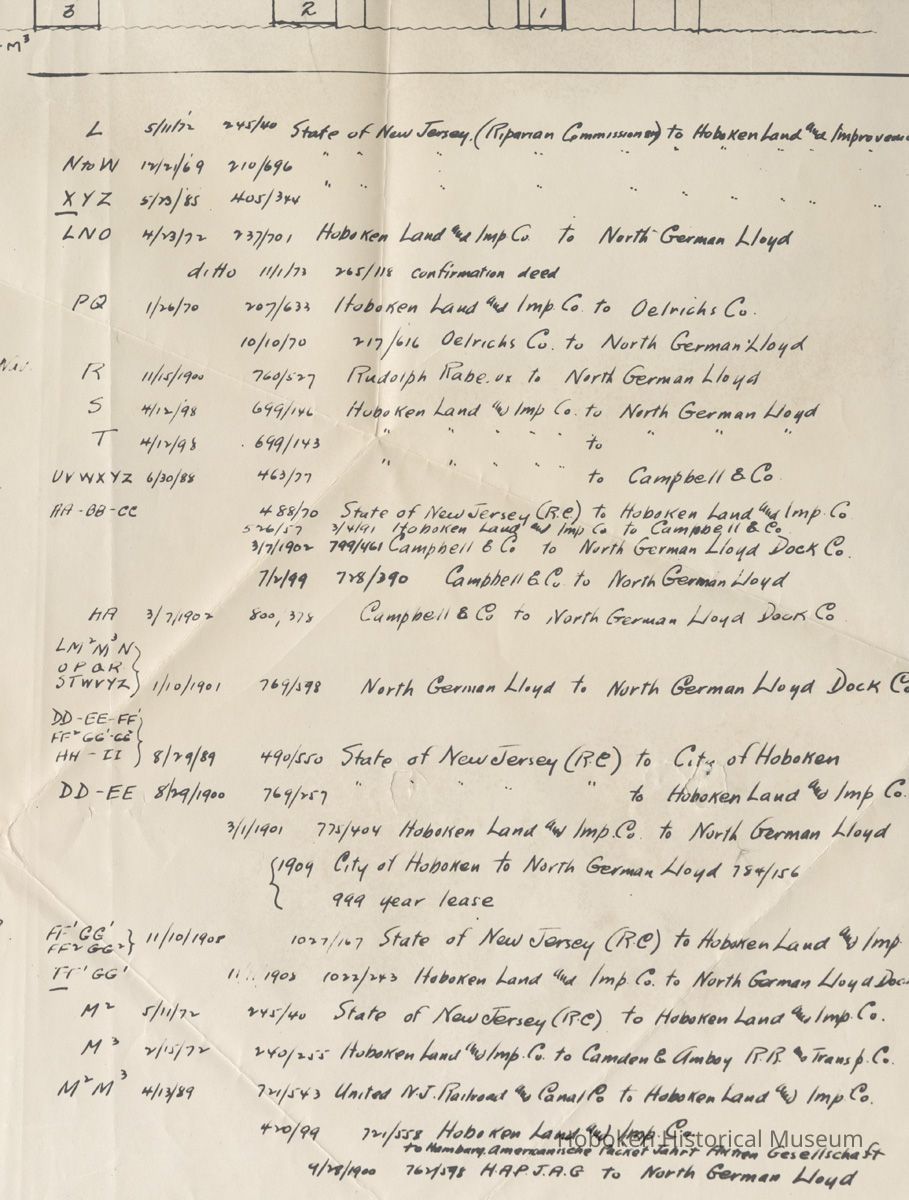 3 2 1
M³
L 5/11/72 245/40 State of New Jersey. (Riparian Commissioners) to Hoboken Land and Improveme
N to W 12/21/69 210/696 " " " " " " " "
X Y Z 5/23/85 405/344 " " " " " " "
LNO 4/23/72 237/701 Hoboken Land and Imp Co. to North German Lloyd
ditto 11/1/73 265/118 confirmation deed
PQ 1/26/70 207/633 Hoboken Land and Imp. Co. to Oelrichs Co.
10/10/70 217/616 Oelrichs Co. to North German Lloyd
Nav.
R 11/15/1900 760/527 Rudolph Rabe.ux to North German Lloyd
S 4/12/98 699/146 Hoboken Land and Imp Co. to North German Lloyd
T 4/12/98 699/143 " " " " " to " " "
UVWXYZ 6/30/88 463/77 " " " " " to Campbell & Co
AA-BB-CC 488/70 State of New Jersey (R.C.) to Hoboken Land and Imp. Co
526/57 3/4/91 Hoboken Land and Imp Co to Campbell & Co.
3/7/1902 799/461 Campbell & Co to North German Lloyd Dock Co.
7/2/99 728/390 Campbell & Co. to North German Lloyd
AA 3/7/1902 800,378 Campbell & Co to North German Lloyd Dock Co
LM²M³N
OPQR
STWVYZ 1/10/1901 769/598 North German Lloyd to North German Lloyd Dock Co
DD-EE-FF'
FF²GG'-GG²
HH-II 8/29/89 490/550 State of New Jersey (RC) to City of Hoboken
DD-EE 8/29/1900 769/257 " " " " to Hoboken Land and Imp Co.
3/1/1901 775/404 Hoboken Land and Imp. Co. to North German Lloyd
1909 City of Hoboken to North German Lloyd 784/156
999 year lease
FF'GG'
FF²GG² 11/10/1908 1027/167 State of New Jersey (RC) to Hoboken Land and Imp.
FF'GG' 11 1908 1022/243 Hoboken Land and Imp. Co. to North German Lloyd Doc
M² 5/11/72 245/40 State of New Jersey (R.C) to Hoboken Land and Imp. Co.
M³ 2/15/72 240/255 Hoboken Land and Imp. Co. to Camden & Amboy R.R. and Transp. Co.
M²M³ 4/13/89 721/543 United N.J. Railroad and Canal Co to Hoboken Land and Imp Co.
420/99 721/558 Hoboken Land and Imp. Co.
to Hamburg Amerikanische Packet Jahrt Aktien Gesellschaft
4/28/1900 762/598 H.A.P.J.A.G to North German Lloyd
Hoboken Historical Museum